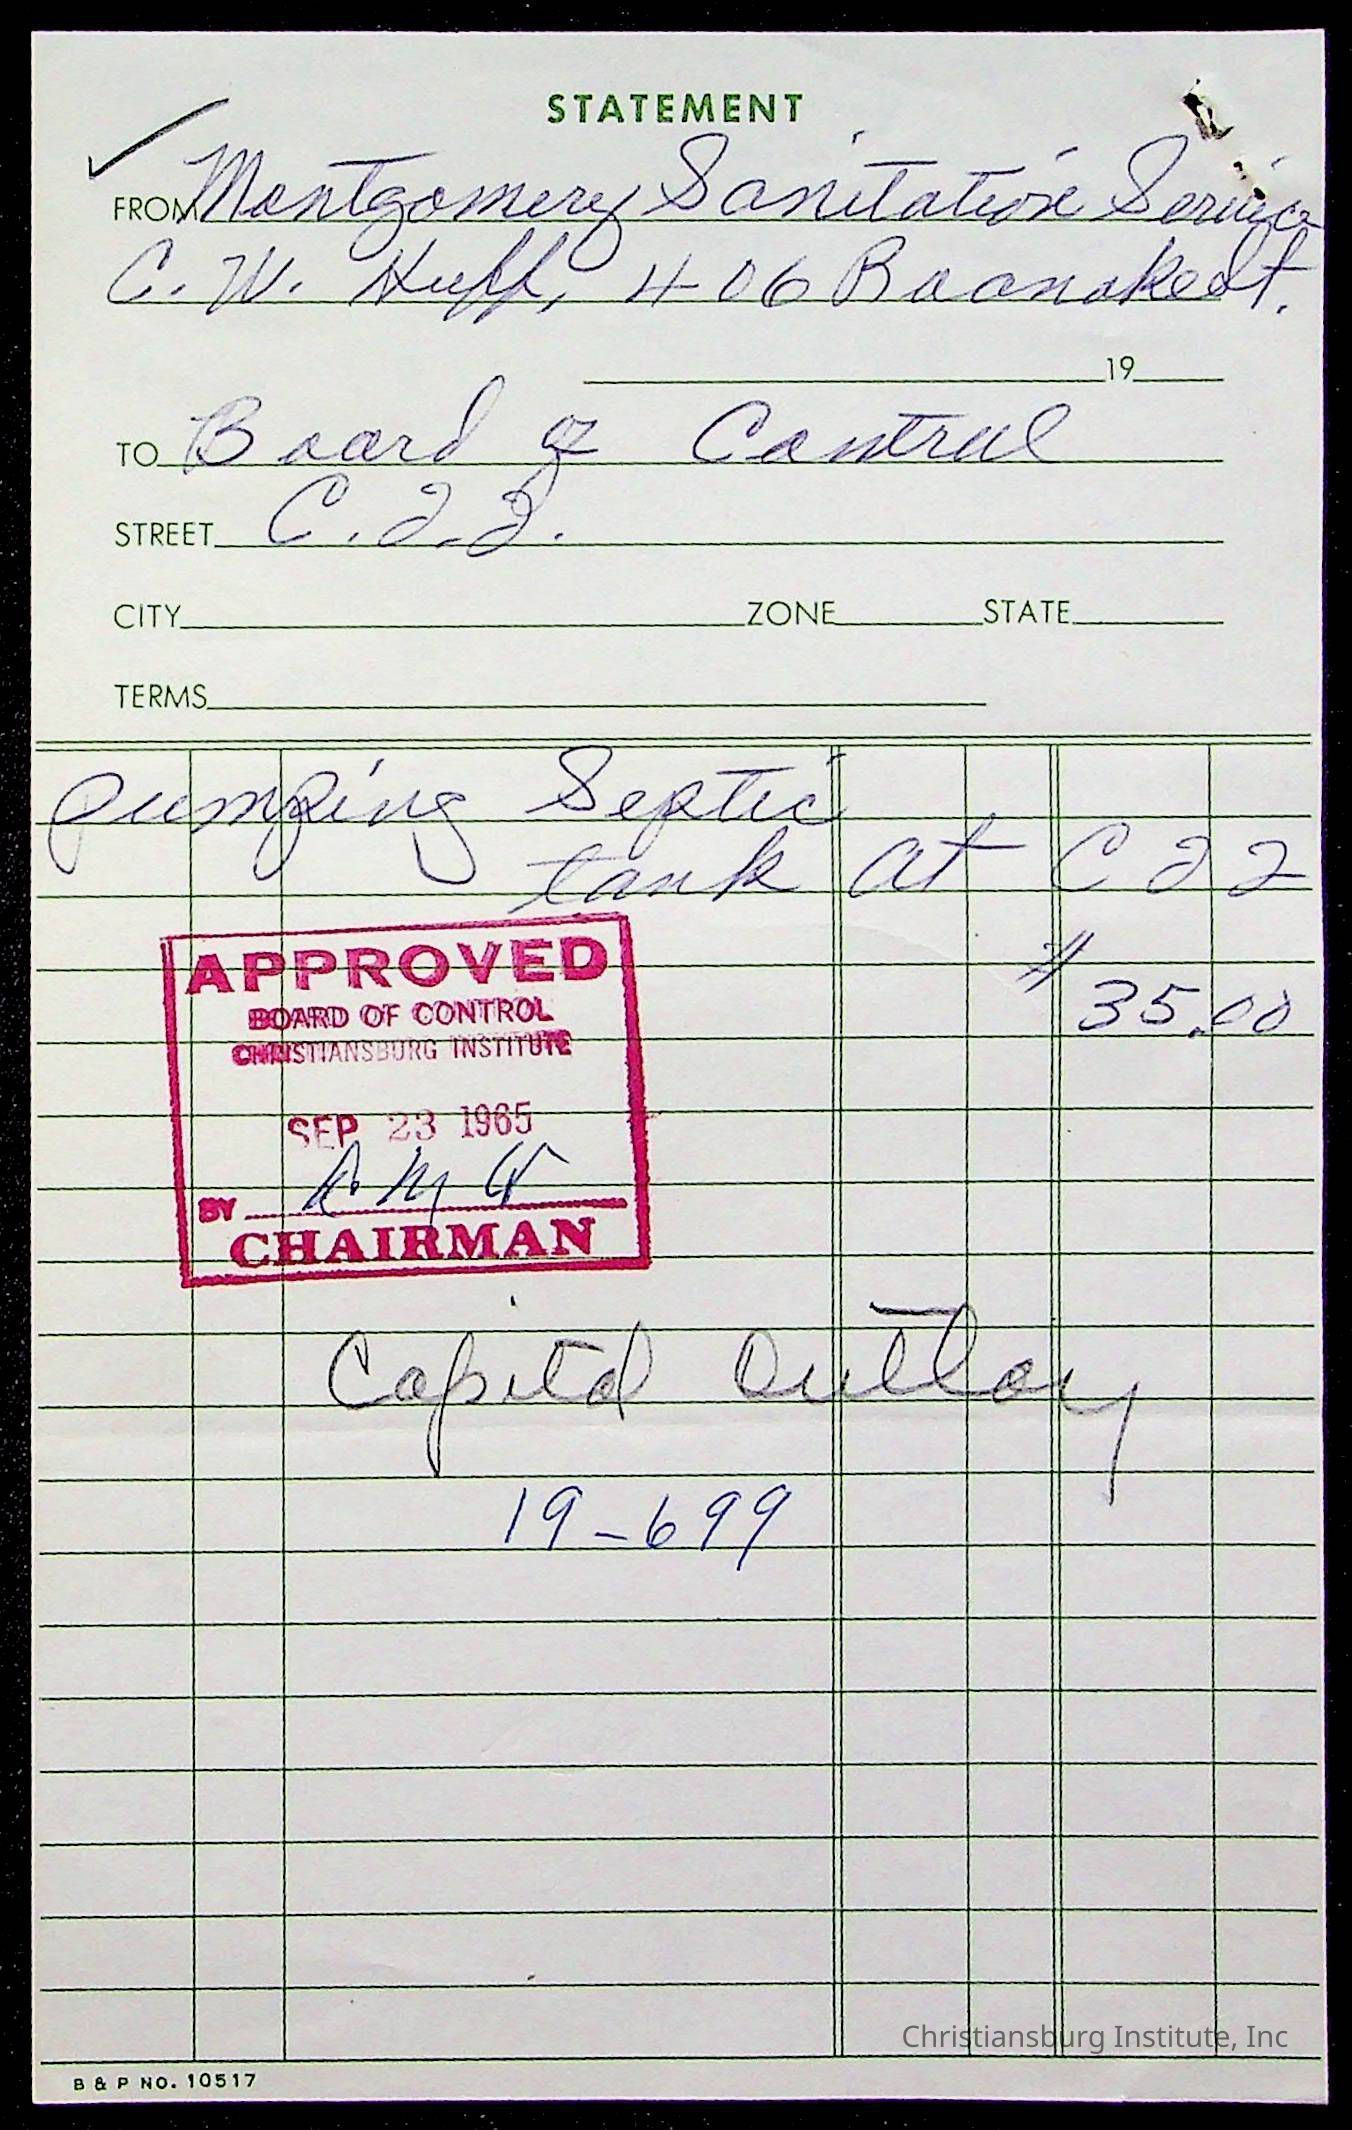 STATEMENT
FROM Montgomery Sanitation Service
C. W. Huff, 406 Roanoke St.
19
TO Board of Control
STREET C. I. I.
CITY ZONE STATE
TERMS
pumping Septic
tank at C I I
$ 35.00
APPROVED
BOARD OF CONTROL
CHRISTIANSBURG INSTITUTE
SEP 23 1965
BY
CHAIRMAN
Capital Outlay
19-699
Christiansburg Institute, Inc
B & P NO. 10517